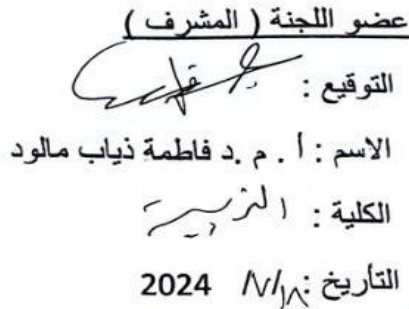 عضو اللجنة ( المشرف )
التوقيع :
الاسم : أ . م .د فاطمة ذياب مالود
الكلية : التربية
التأريخ : ١٨/٧/ 2024